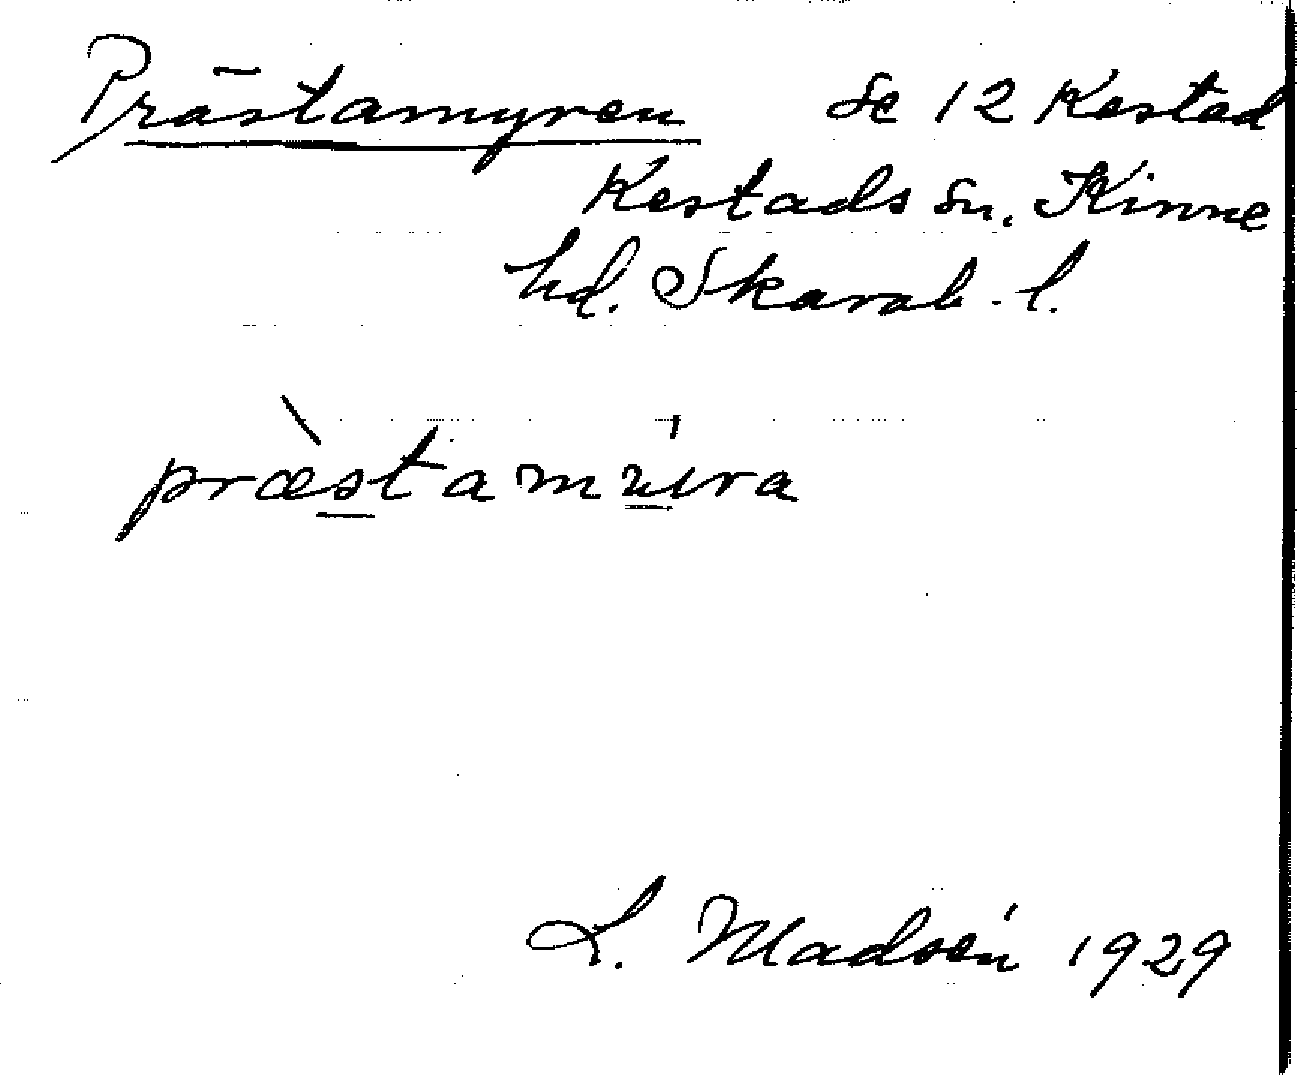 Prästamyren se 12 Kestad
Kestads sn. Kinne
hd. Skarab. l.
præstamura
L. Madsén 1929